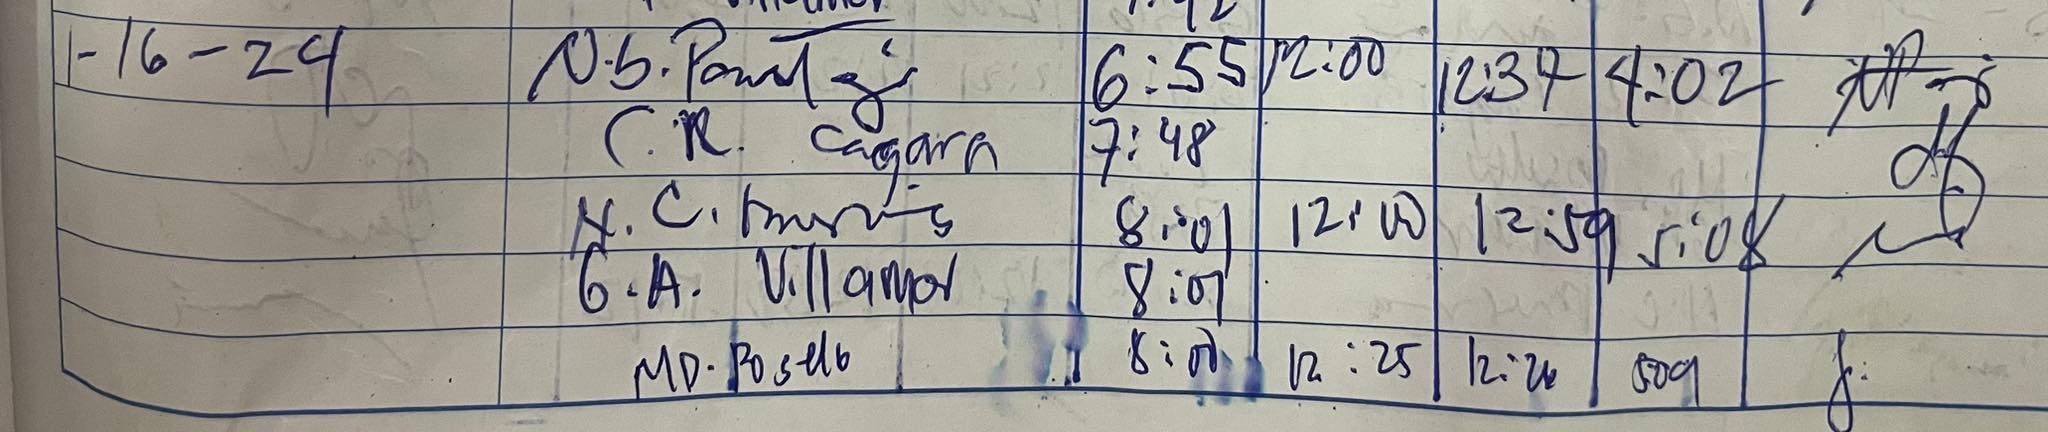 1-16-24 N.b. 6:55 12:00 12:37 4:02
C.R. Cagara 7:48
N.C. 8:01 12:00 12:59 5:08
G.A. Villamor 8:01
MD. Posello 8:00 12:25 12:26 509